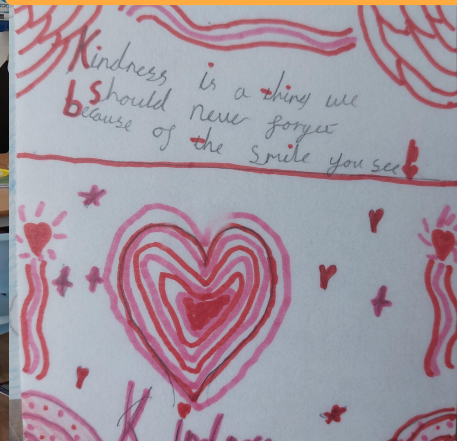 Kindness is a thing we
should never forget
because of the smile you see!
Kindness